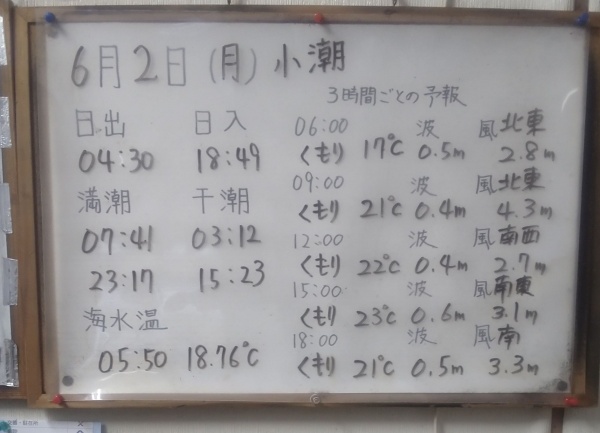 6月2日(月)小潮
3時間ごとの予報
日出 日入
04:30 18:49
満潮 干潮
07:41 03:12
23:17 15:23
海水温
05:50 18.76℃
06:00 波 風北東
くもり 17℃ 0.5m 2.8m
09:00 波 風北東
くもり 21℃ 0.4m 4.3m
12:00 波 風南西
くもり 22℃ 0.4m 2.7m
15:00 波 風南東
くもり 23℃ 0.6m 3.1m
18:00 波 風南
くもり 21℃ 0.5m 3.3m